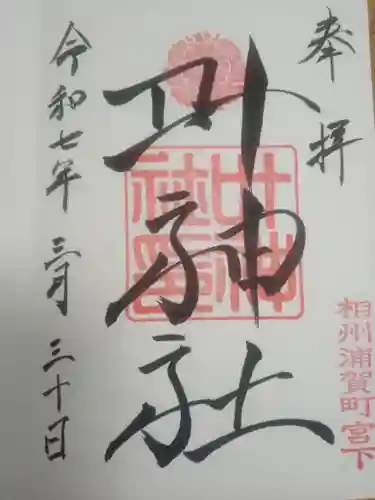 奉拝
相州浦賀町宮下
叶神社
叶神
社
令和七年三月三十日